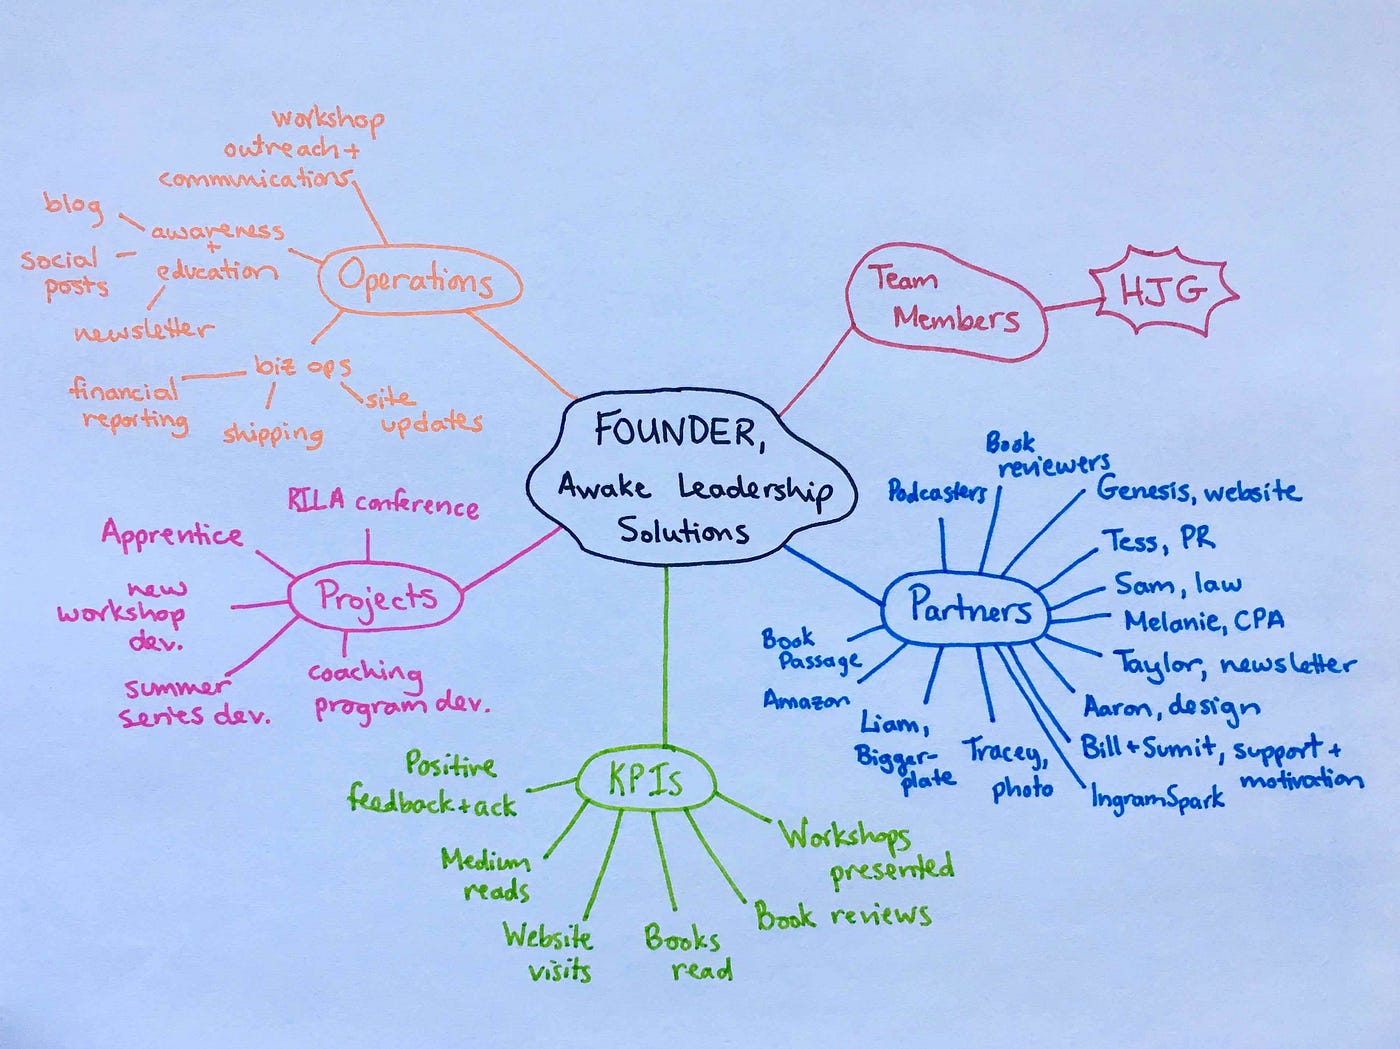 FOUNDER,
Awake Leadership
Solutions
Operations
workshop
outreach +
communications
awareness
+
education
blog
social
posts
newsletter
biz ops
financial
reporting
shipping
site
updates
Team
Members
HJG
Partners
Podcasters
Book
reviewers
Genesis, website
Tess, PR
Sam, law
Melanie, CPA
Taylor, newsletter
Aaron, design
Bill + Sumit, support +
motivation
IngramSpark
Tracey,
photo
Liam,
Bigger-
plate
Amazon
Book
Passage
KPIs
Workshops
presented
Book reviews
Books
read
Website
visits
Medium
reads
Positive
feedback + ack
Projects
RILA conference
Apprentice
new
workshop
dev.
summer
series dev.
coaching
program dev.